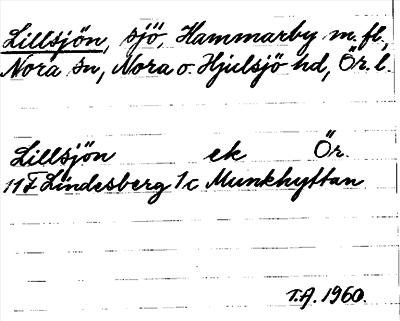 Lillsjön, sjö, Hammarby m. fl.,
Nora sn, Nora o. Hjulsjö hd, Ör. l.
Lillsjön ek Ör.
11F Lindesberg 1c Munkhyttan
T.A. 1960.